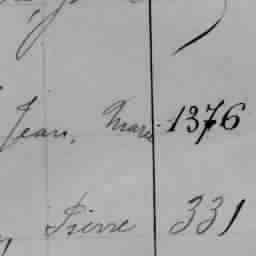 Jean, Marie 1376
Pierre 331